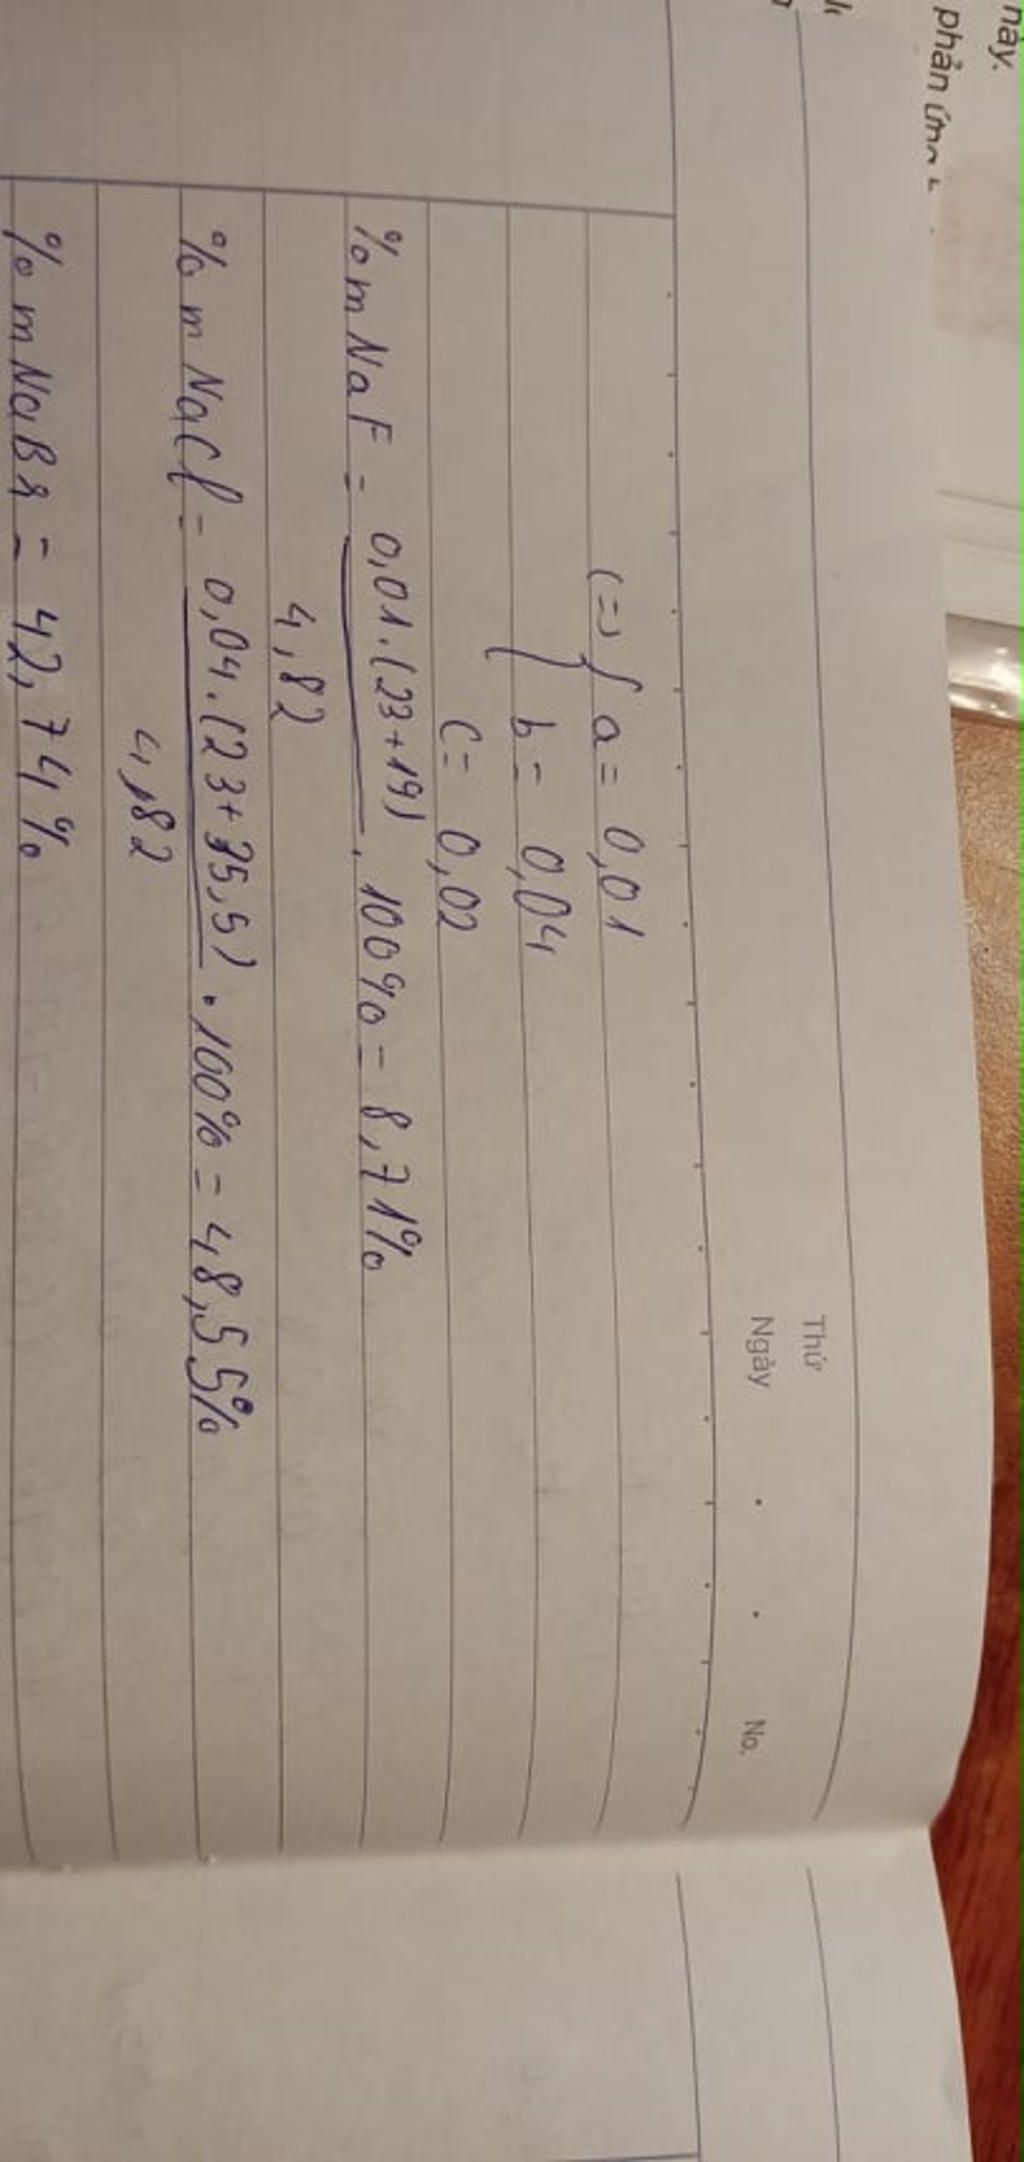 này.
phản ứng
Thứ
Ngày . . No.
(=) { a = 0,01
b = 0,04
c = 0,02
% m NaF = 0,01.(23+19) . 100% = 8,71%
4,82
% m NaCl = 0,04.(23+35,5) . 100% = 48,55%
4,82
% m NaBr = 42,74%